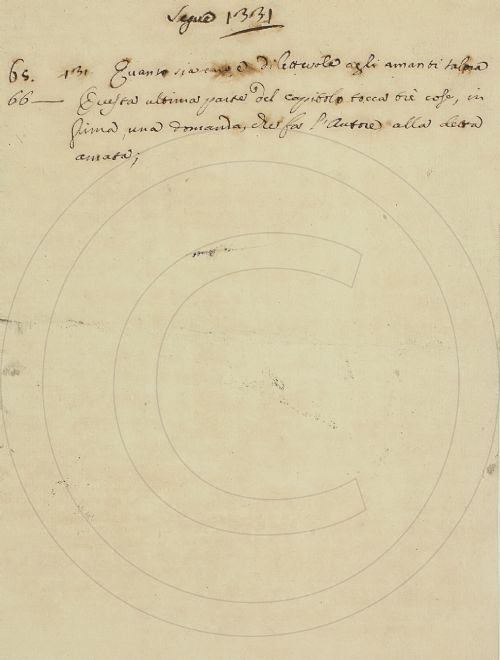 Segue 1331
65. 131 Quanto sia caro, e dilettevole agli amanti talora
66 — Questa ultima parte del capitolo tocca trè cose, in
prima, una domanda, che fa l'Autore alla detta
amata;